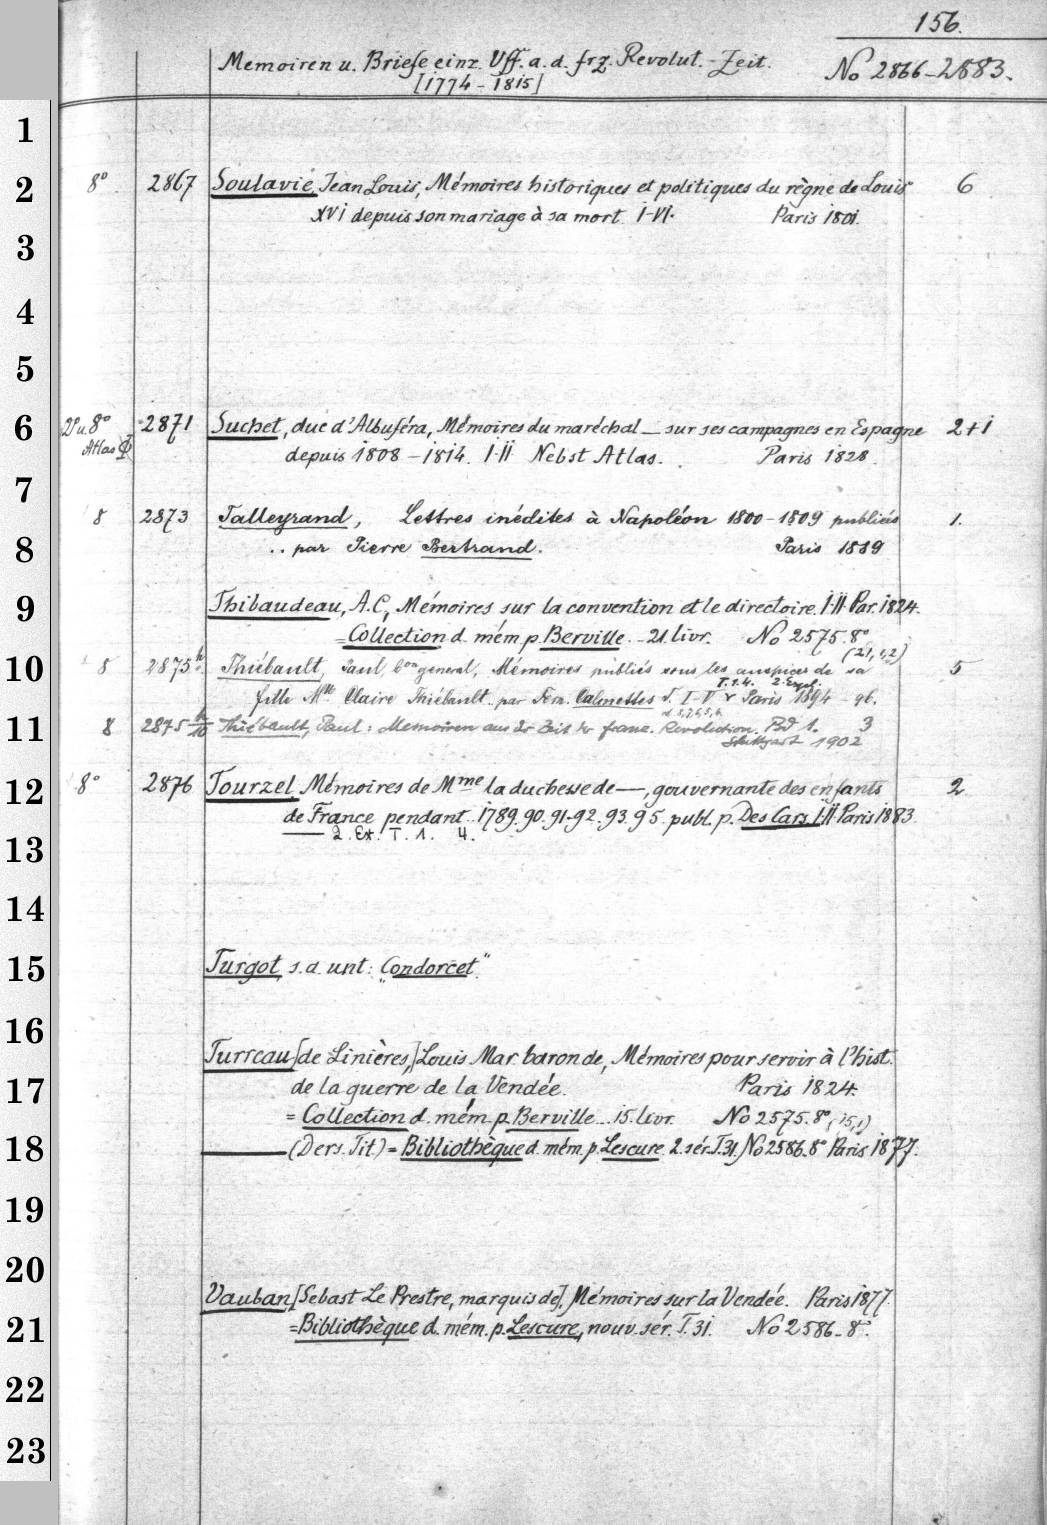 156.
Memoiren u. Briefe einz. Vff. a. d. frz. Revolut.-Zeit. No 2866-2883.
[1774-1815]
1
2 8° 2867 Soulavie, Jean Louis, Mémoires historiques et politiques du règne de Louis 6
XVI depuis son mariage à sa mort I-VI. Paris 1801.
3
4
5
6 2° u. 8° 2871 Suchet, duc d'Albuféra, Mémoires du maréchal — sur ses campagnes en Espagne 2+1
Atlas depuis 1808-1814. I-II Nebst Atlas. Paris 1828.
7
8 2873 Talleyrand, Lettres inédites à Napoléon 1800-1809 publiées 1.
8 par Pierre Bertrand. Paris 1889
9 Thibaudeau, A. C, Mémoires sur la convention et le directoire. I-II Par. 1824.
= Collection d. mém p. Berville - 21. livr. No 2575. 8°
(21,1,2)
10 8 2875 Thiébault, Paul, bon general, Mémoires publiés sous les auspices de sa 5
T. 1. 4. 2. Expl.
fille Mlle Claire Thiébault par Fern. Calmettes T. I-V Paris 1894-96.
11 8 2875 Thiébault, Paul: Memoiren aus der Zeit der franz. Revolution. Bd 1. 3
Stuttgart 1902
12 8° 2876 Tourzel, Mémoires de Mme la duchesse de —, gouvernante des enfants 2
de France pendant 1789. 90. 91-92. 93. 95. publ. p. Des Cars. I-II Paris 1883.
2. Ex. T. 1. 4.
13
14
15 Turgot, s. a. unt: „Condorcet"
16
Turreau [de Linières,] Louis Mar. baron de, Mémoires pour servir à l'hist.
17 de la guerre de la Vendée. Paris 1824.
= Collection d. mém. p. Berville - 15. livr. No 2575. 8° (15,1)
18 — (Ders. Tit) = Bibliothèque d. mém. p. Lescure 2. sér. T. 31. No 2586. 8° Paris 1877.
19
20
Vauban [Sebast Le Prestre, marquis de], Mémoires sur la Vendée. Paris 1877.
21 = Bibliothèque d. mém. p. Lescure, nouv. sér. T. 31. No 2586. 8°.
22
23